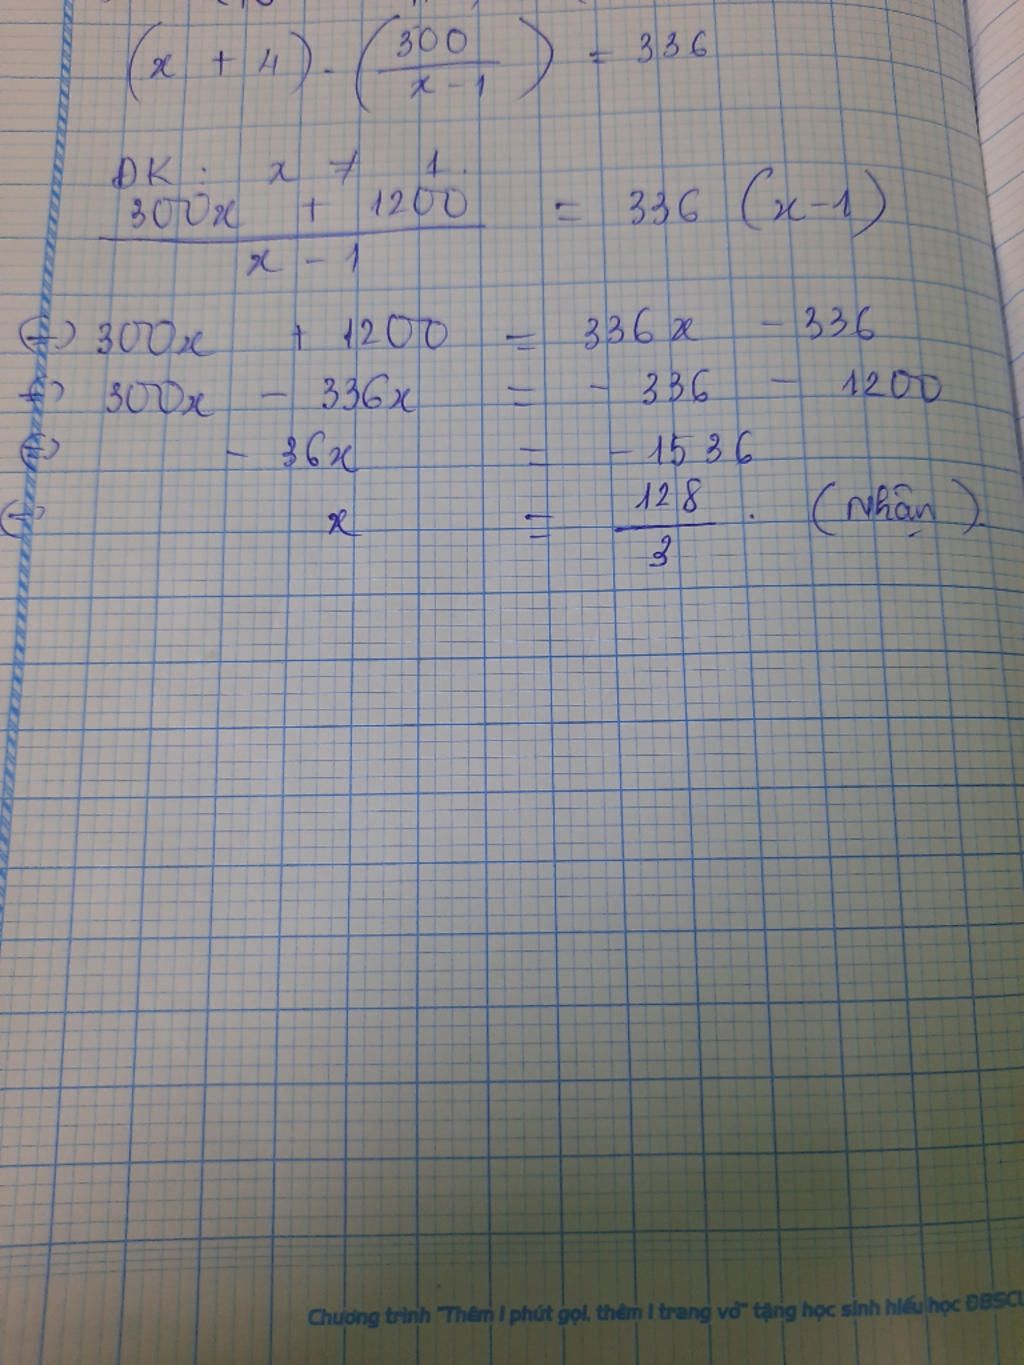 (x + 4) . (300 / x - 1) = 336
ĐK : x ≠ 1.
300x + 1200 / x - 1 = 336 (x - 1)
(=) 300x + 1200 = 336x - 336
(=) 300x - 336x = - 336 - 1200
(=) - 36x = - 1536
(=) x = 128 / 3 . (Nhận)
Chương trình "Thêm 1 phút gọi, thêm 1 trang vở" tặng học sinh hiếu học ĐBSCL